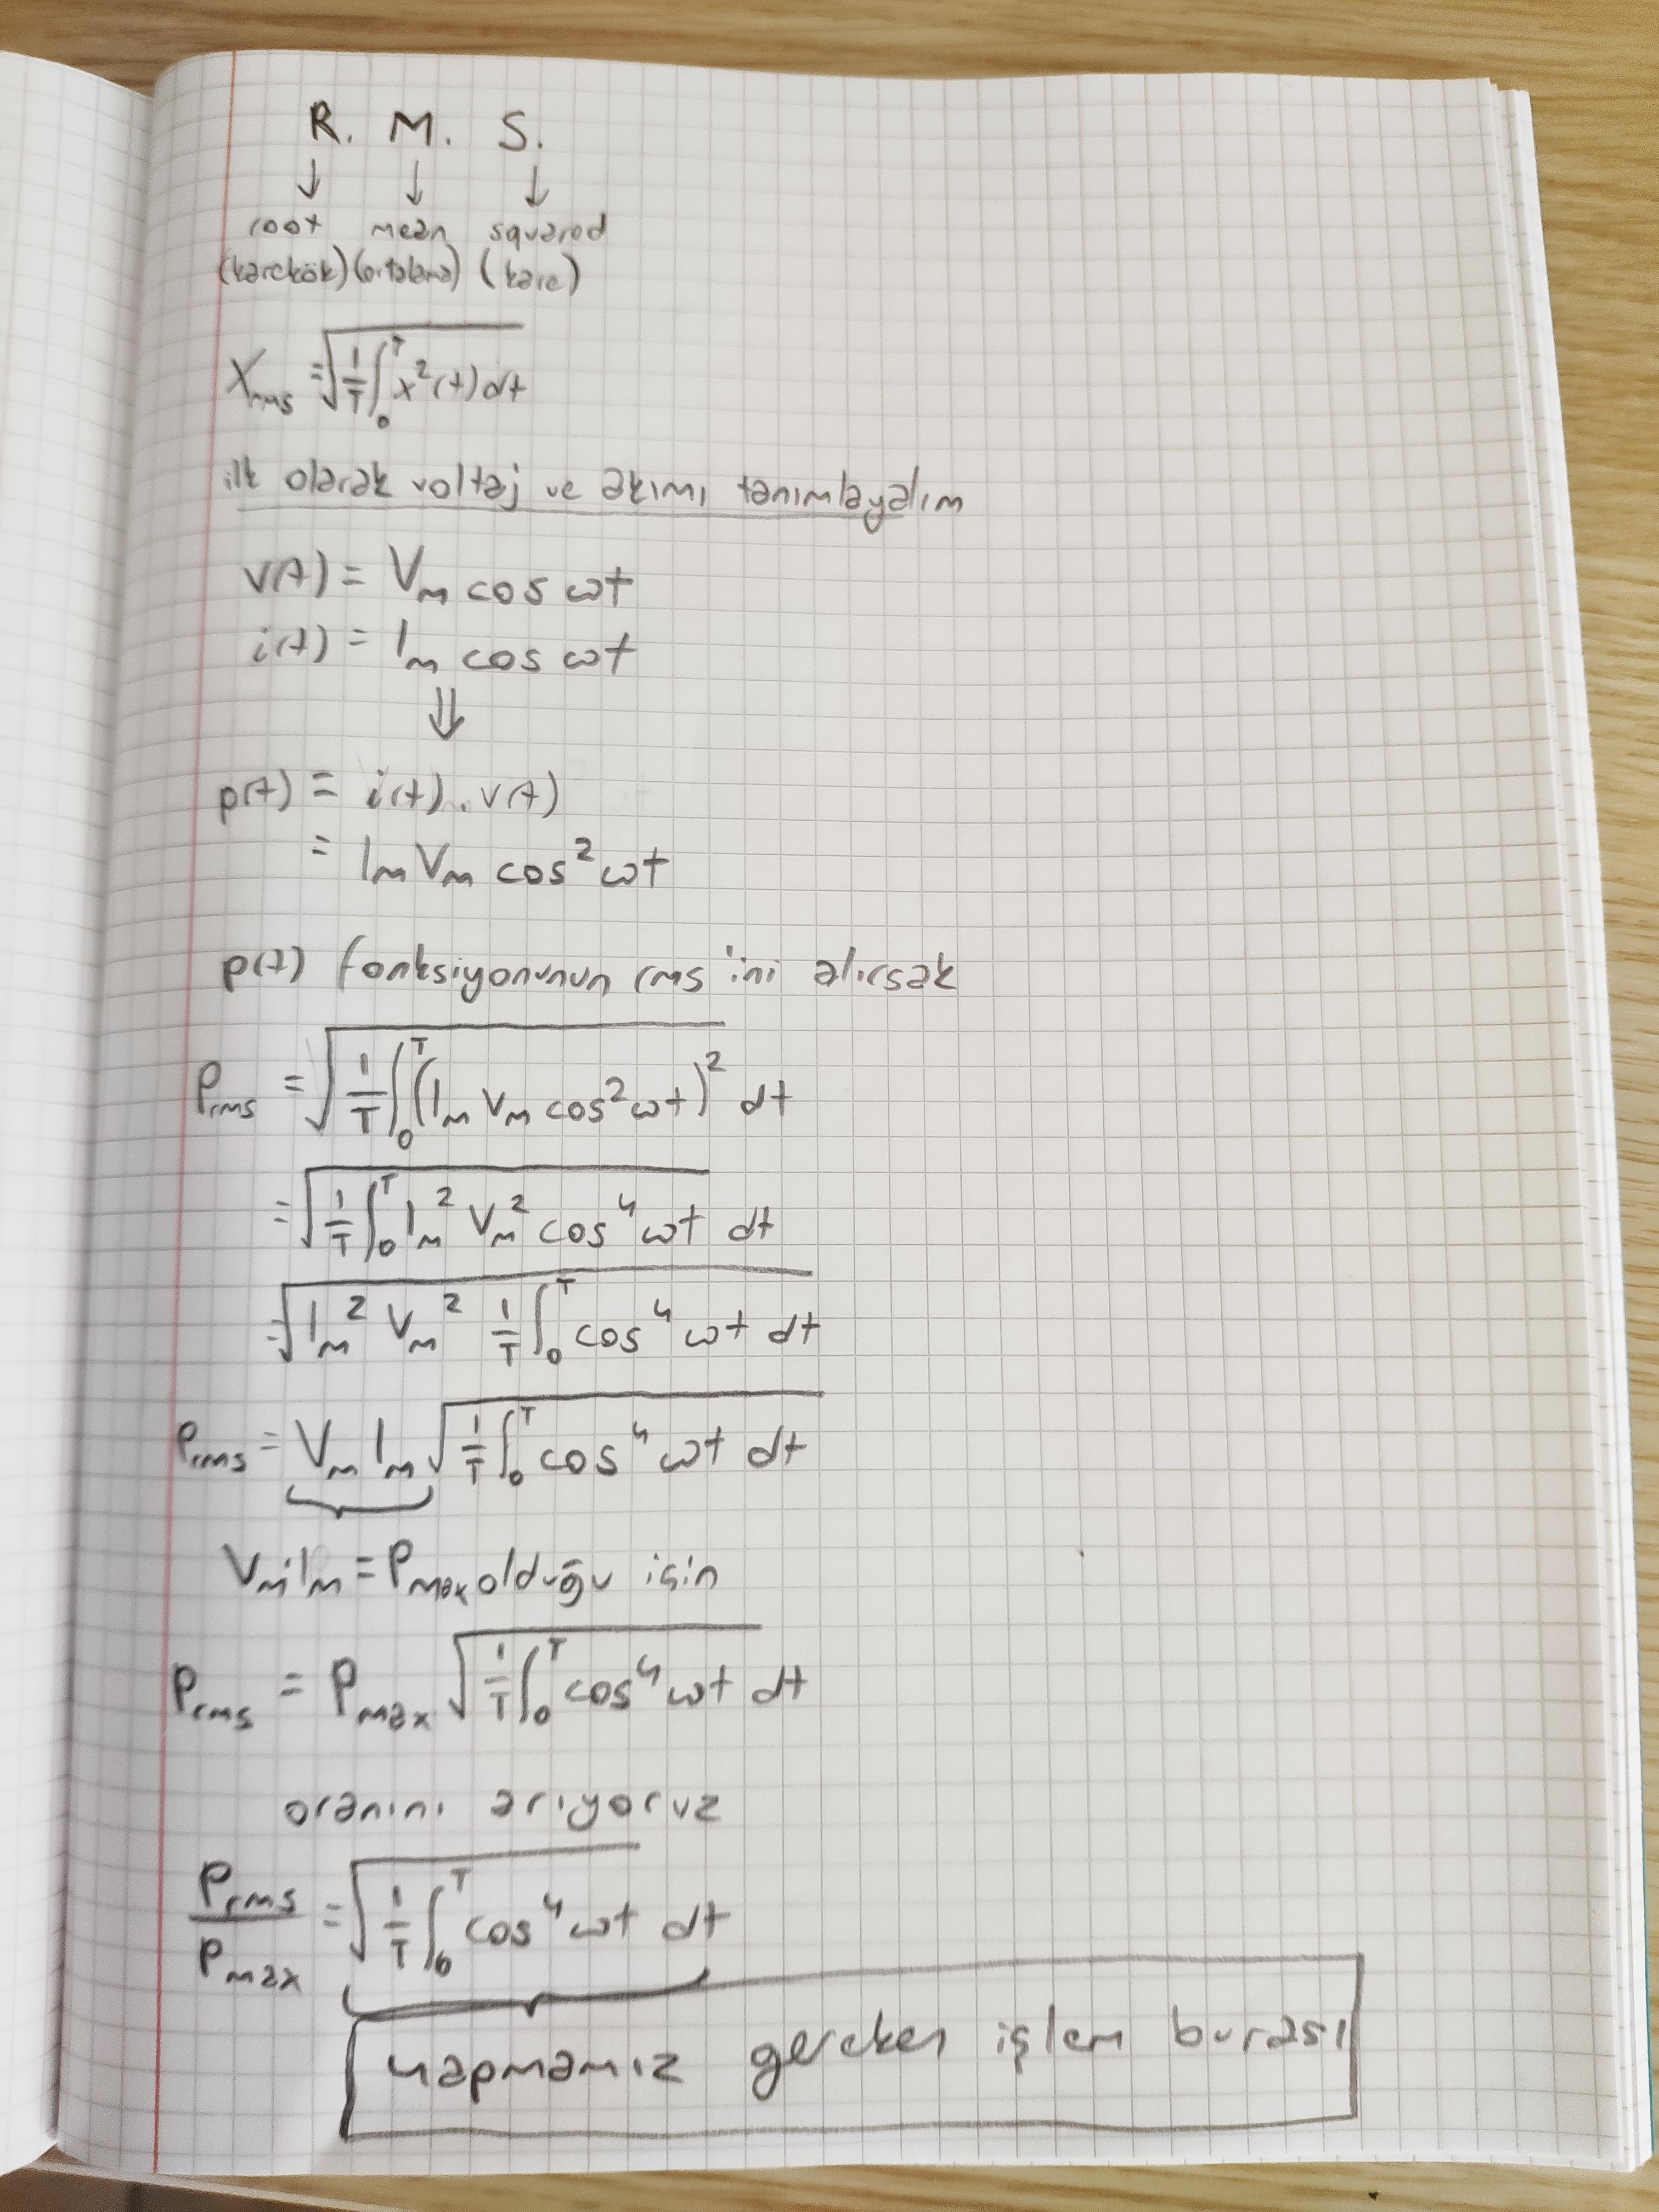 R. M. S.
↓ ↓ ↓
root mean squared
(karekök) (ortalama) (kare)
Xrms = √(1/T ∫₀ᵀ x²(t) dt)
ilk olarak voltaj ve akımı tanımlayalım
v(t) = Vm cos ωt
i(t) = Im cos ωt
⇓
p(t) = i(t) . v(t)
= Im Vm cos² ωt
p(t) fonksiyonunun rms'ini alırsak
Prms = √(1/T ∫₀ᵀ (Im Vm cos² ωt)² dt)
= √(1/T ∫₀ᵀ Im² Vm² cos⁴ ωt dt)
= √(Im² Vm² 1/T ∫₀ᵀ cos⁴ ωt dt)
Prms = Vm Im √(1/T ∫₀ᵀ cos⁴ ωt dt)
Vm.Im = Pmax olduğu için
Prms = Pmax √(1/T ∫₀ᵀ cos⁴ ωt dt)
oranını arıyoruz
Prms/Pmax = √(1/T ∫₀ᵀ cos⁴ ωt dt)
yapmamız gereken işlem burası